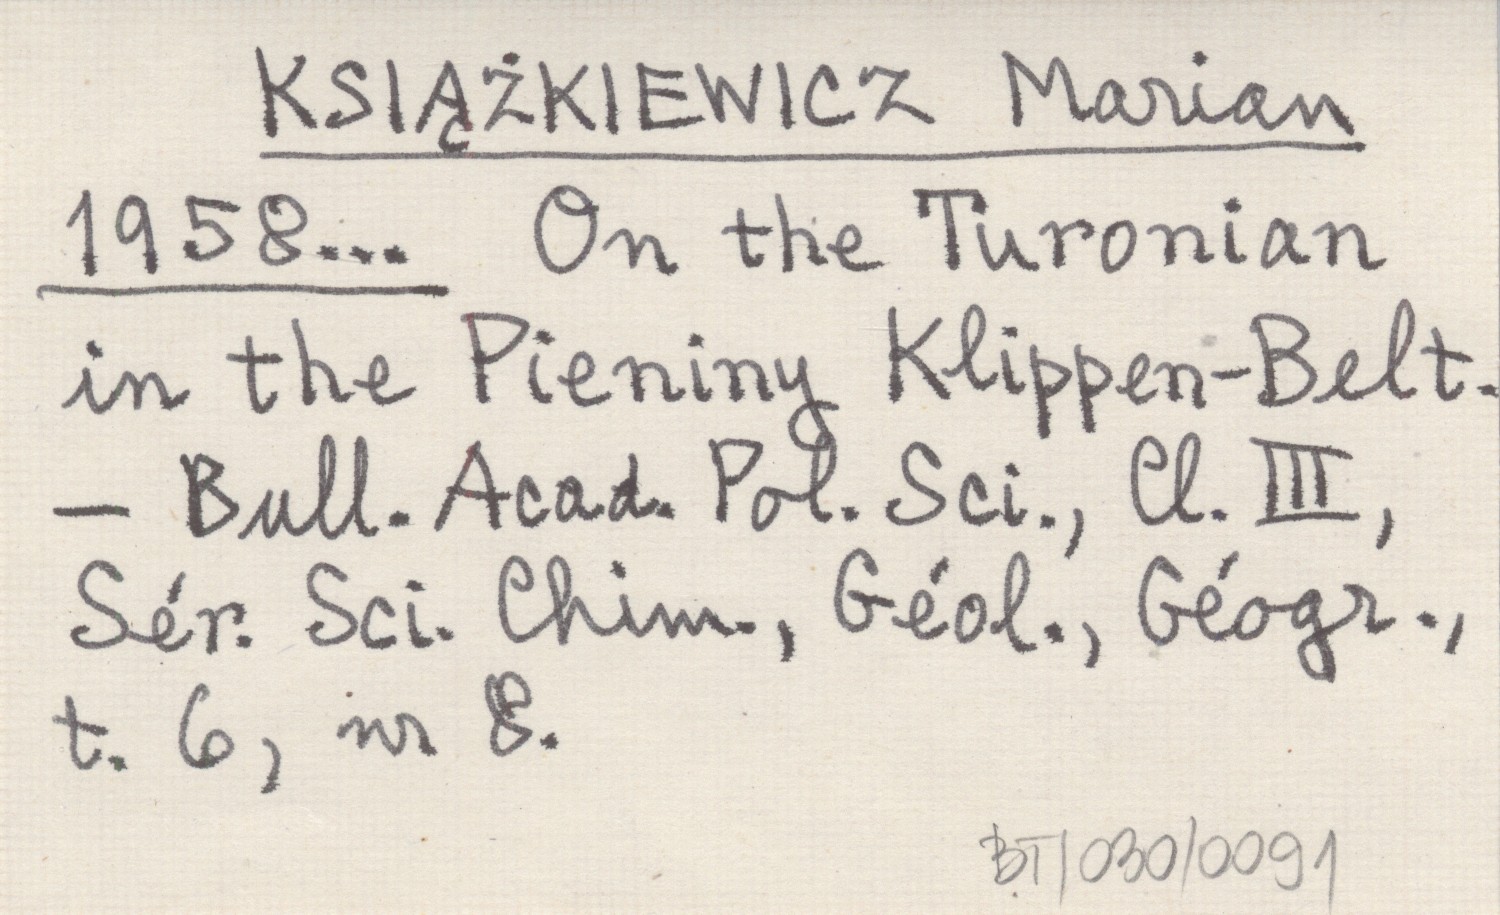 KSIĄŻKIEWICZ Marian
1958... On the Turonian
in the Pieniny Klippen-Belt.
— Bull. Acad. Pol. Sci., Cl. III,
Sér. Sci. Chim., Géol., Géogr.,
t. 6, nr 8.
BT/030/0091